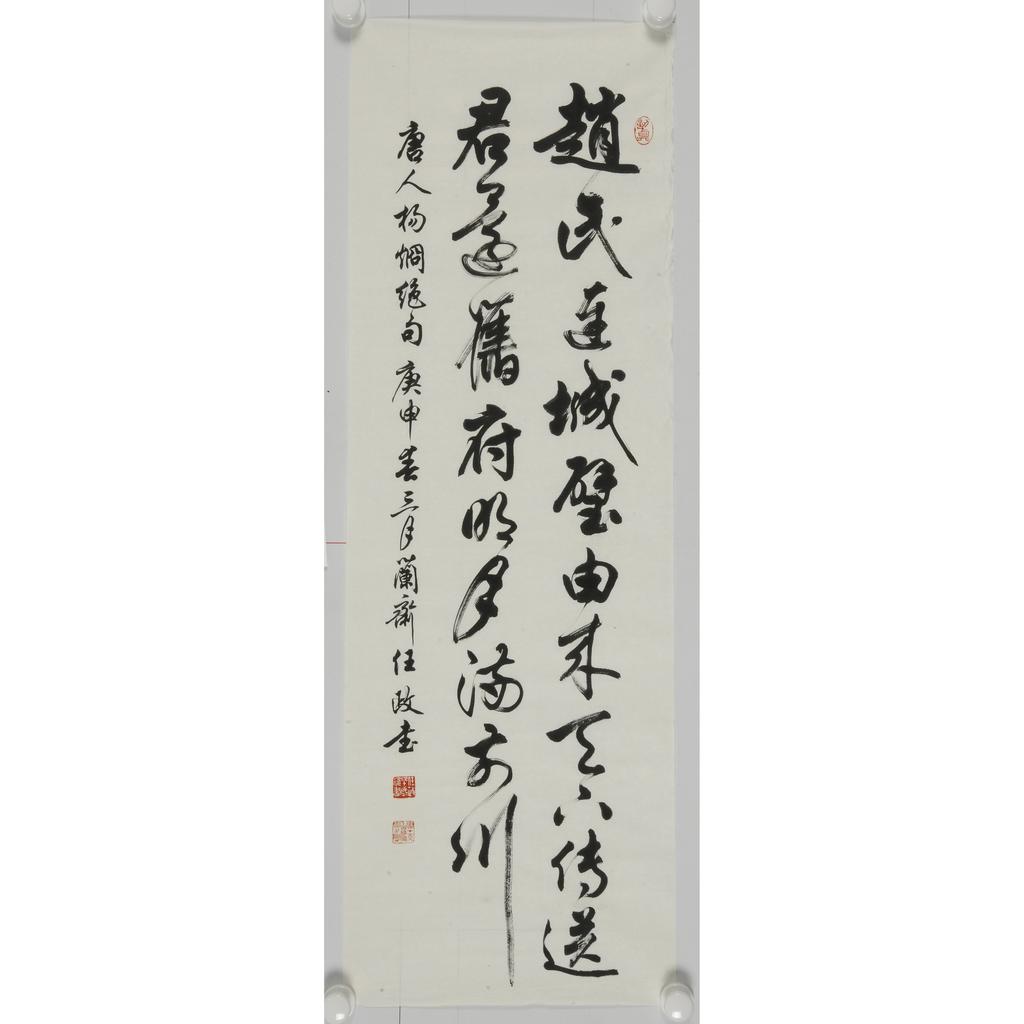 趙氏連城璧由來天下傳送
君還舊府明月滿前川
唐人楊烱絕句庚申春三月蘭齋任政書